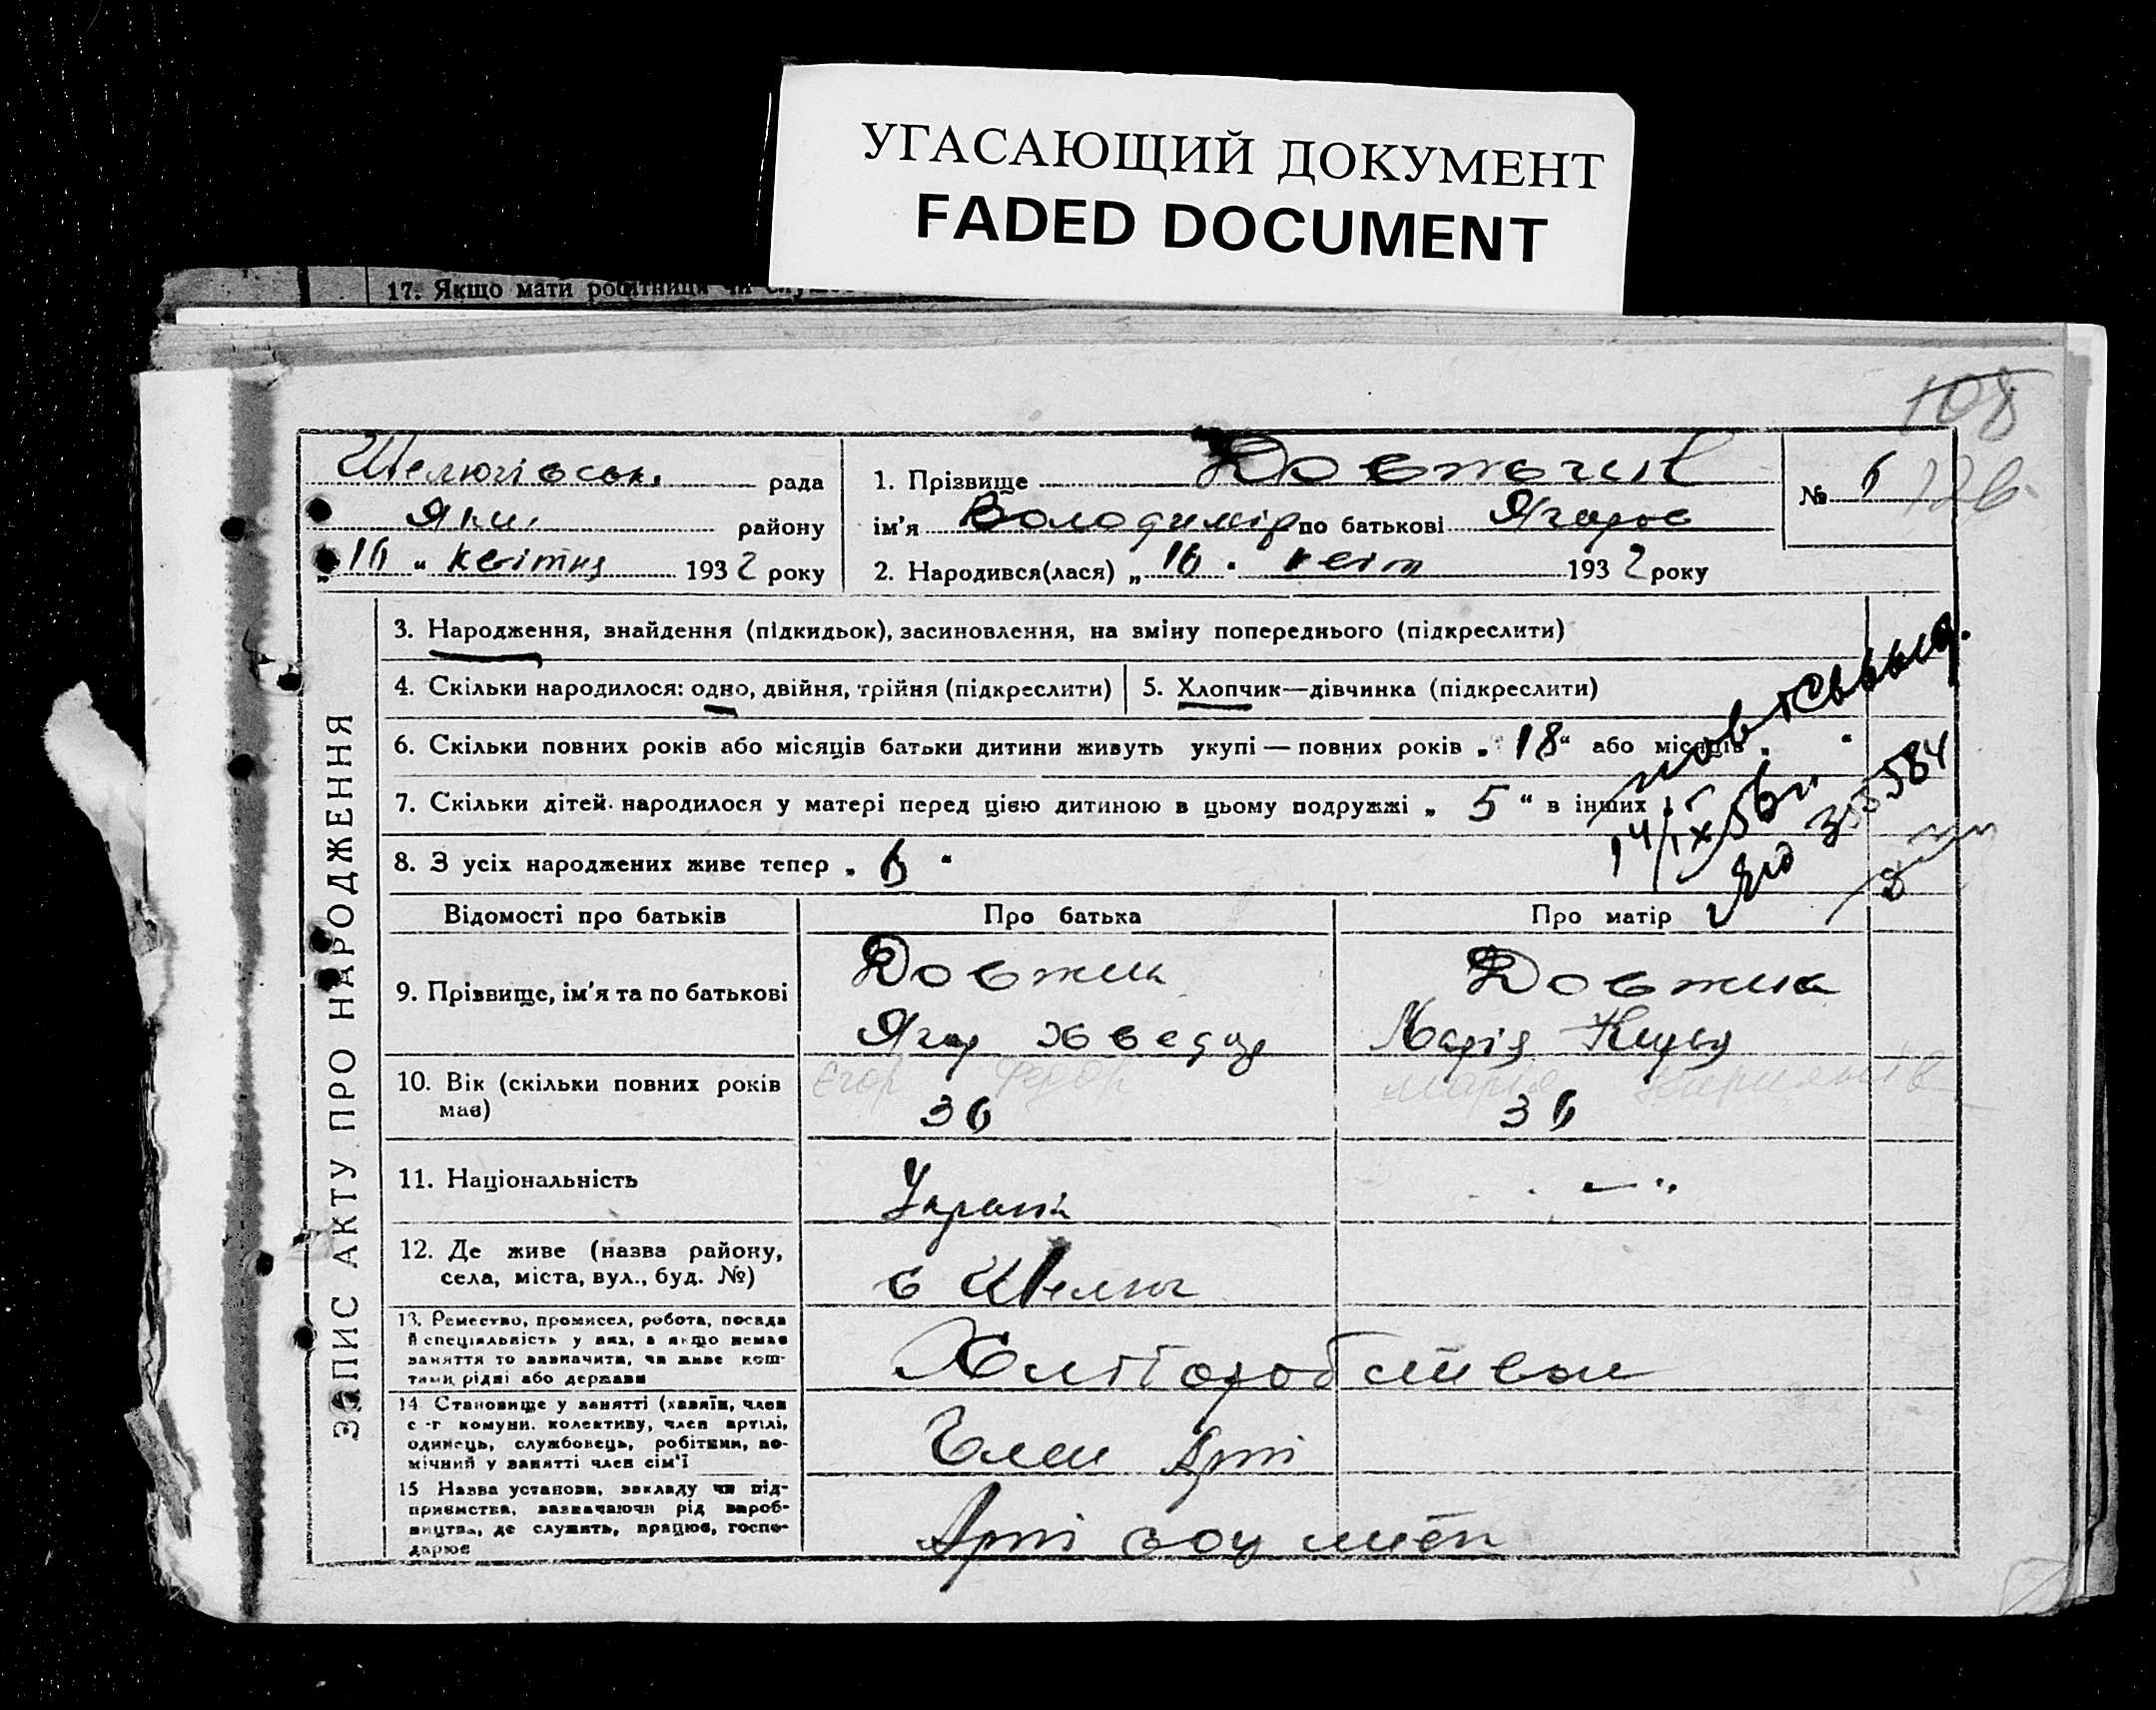 УГАСАЮЩИЙ ДОКУМЕНТ
FADED DOCUMENT
17. Якщо мати робітниця чи
108
рада
району
„ 16 " квітня 1932 року
1. Прізвище
ім'я Володимір по батькові Ягоров
2. Народився(лася) „ 16 " квіт 1932 року
№ 6
ЗАПИС АКТУ ПРО НАРОДЖЕННЯ
3. Народження, знайдення (підкидьок), засиновлення, на зміну попереднього (підкреслити)
4. Скільки народилося: одно, двійня, трійня (підкреслити)
5. Хлопчик—дівчинка (підкреслити)
6. Скільки повних років або місяців батьки дитини живуть укупі — повних років „ 18 " або місяців „ "
7. Скільки дітей народилося у матері перед цією дитиною в цьому подружжі „ 5 " в інших
8. З усіх народжених живе тепер „ 6 "
14/IX 56
Відомості про батьків
Про батька
Про матір
9. Прізвище, ім'я та по батькові
Довжик
Ягор Хведор
Довжик
Марія
Єгор Федор
Марія
10. Вік (скільки повних років
має)
36
36
11. Національність
Україн
— " —
12. Де живе (назва району,
села, міста, вул., буд. №)
с Шелюг
13. Ремество, промисел, робота, посада
й спеціяльність у них, а якщо немає
заняття то зазначити, чи живе кош-
тами рідні або держави
14 Становище у занятті (хазяїн, член
с-г комуни, колективу, член артілі,
одинець, службовець, робітник, по-
мічний у занятті член сім'ї
Член Арті
15 Назва установи, закладу чи під-
приємства, зазначаючи рід вироб-
ництва, де служить, працює, госпо-
дарює
Арті